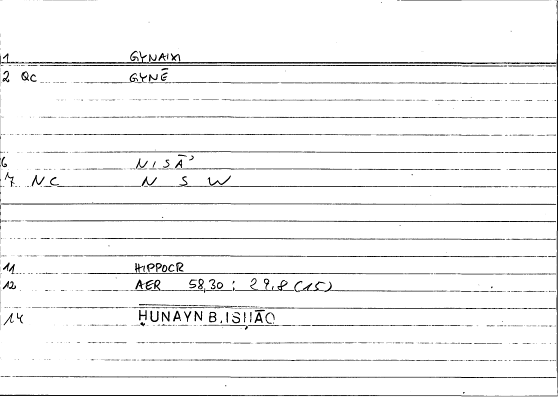 1 GYNAIXI
2 QC GYNĒ
6 NISĀ'
7 NC N S W
11 HIPPOCR
12 AER 58,30 : 29,8 (15)
14 ḤUNAYN B. ISḤĀQ